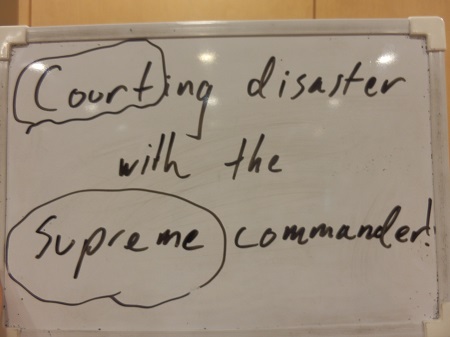 Courting disaster
with the
Supreme commander!